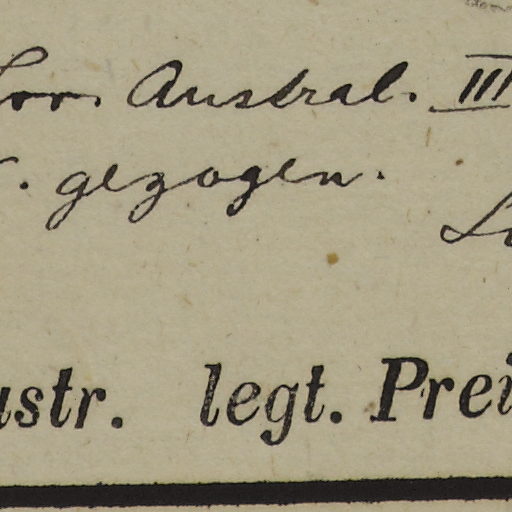 Austral. III
gezogen.
ustr. legt. Prei